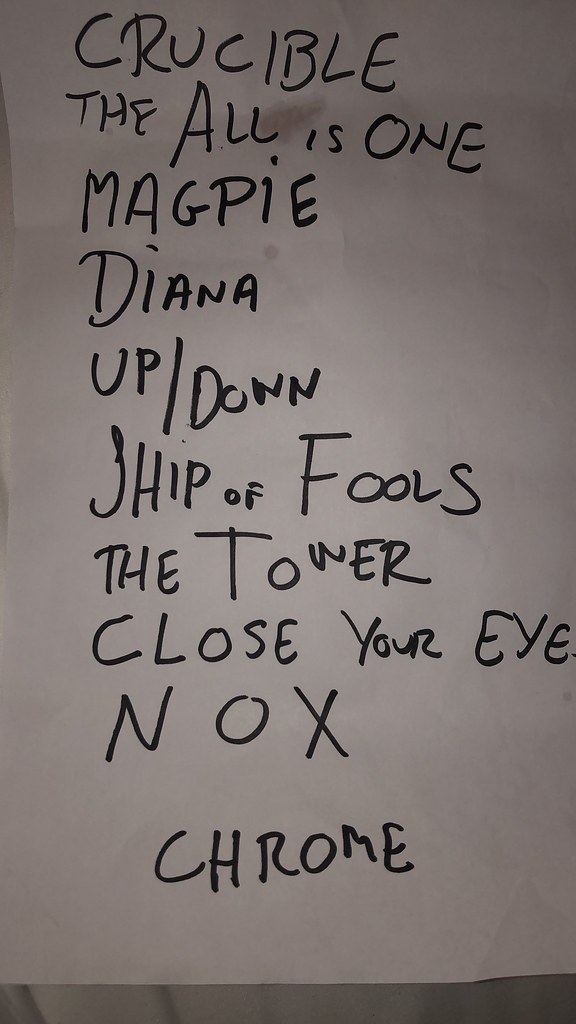 CRUCIBLE
THE ALL is ONE
MAGPiE
DiANA
UP/DOWN
SHIP OF FOOLS
THE TOWER
CLOSE YOUR EYE
NOX
CHROME